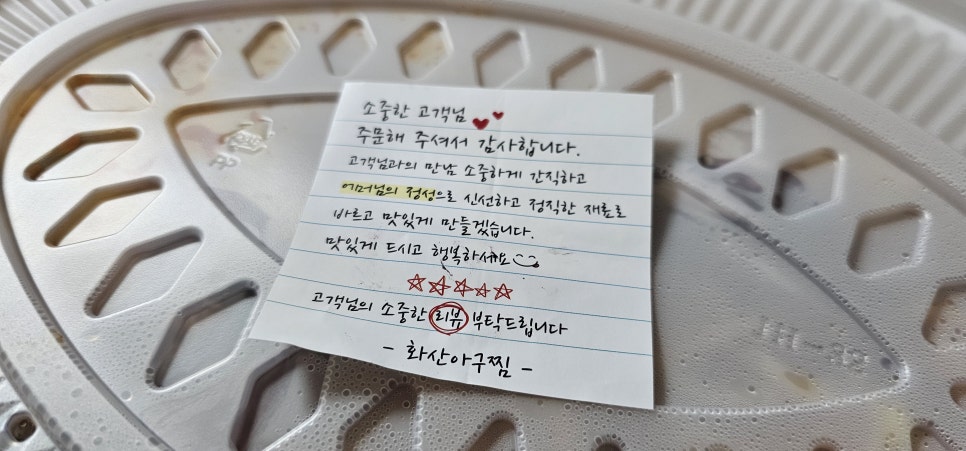 소중한 고객님
주문해 주셔서 감사합니다.
고객님과의 만남 소중하게 간직하고
어머님의 정성으로 신선하고 정직한 재료로
바르고 맛있게 만들겠습니다.
맛있게 드시고 행복하세요
☆☆☆☆☆
고객님의 소중한 리뷰 부탁드립니다
- 화산아구찜 -